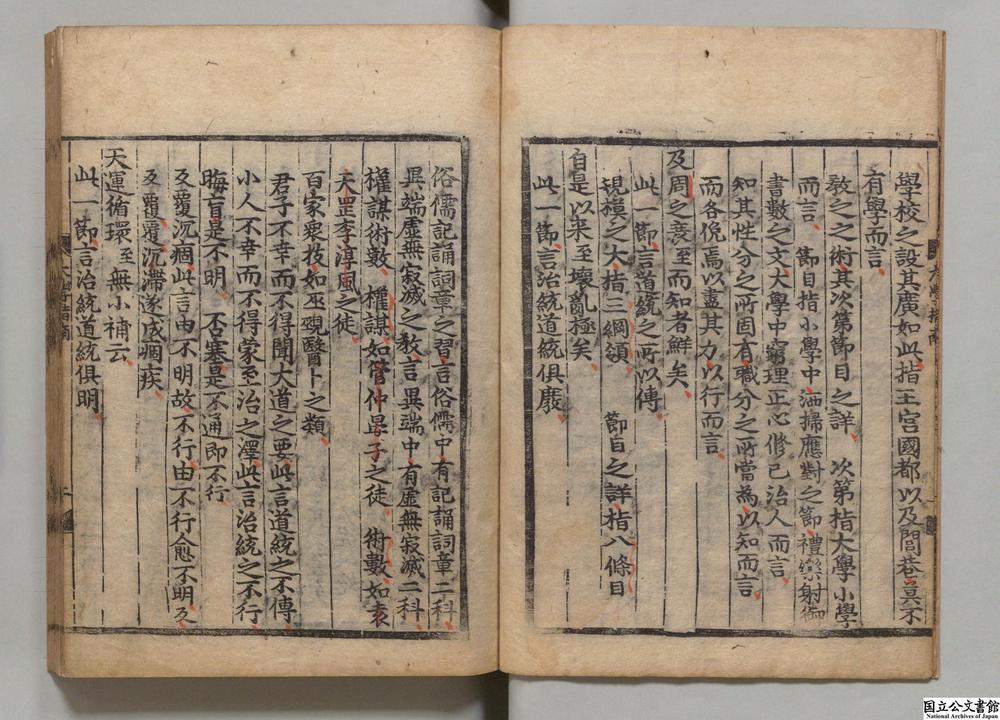 學校之設其廣如此指王宮國都以及閭巷莫不
有學而言
教之之術其次第節目之詳 次第指大學小學
而言 節目指小學中洒掃應對之節禮樂射御
書數之文大學中窮理正心修己治人而言
知其性分之所固有職分之所當為以知而言
而各俛焉以盡其力以行而言
及周之衰至而知者鮮矣
此一節言道統之所以傳
規模之大指三綱領 節目之詳指八條目
自是以来至壞亂極矣
此一節言治統道統俱廢
俗儒記誦詞章之習言俗儒中有記誦詞章二科
異端虛無寂滅之教言異端中有虛無寂滅二科
權謀術數 權謀如管仲晏子之徒 術數如袁
天罡李淳風之徒
百家衆技如巫覡醫卜之類
君子不幸而不得聞大道之要此言道統之不傳
小人不幸而不得蒙至治之澤此言治統之不行
晦盲是不明 否塞是不通即不行
反覆沉痼此言由不明故不行由不行愈不明及
反覆沉滯遂成痼疾
天運循環至無小補云
此一節言治統道統俱明
大學指南
二
国立公文書館
National Archives of Japan